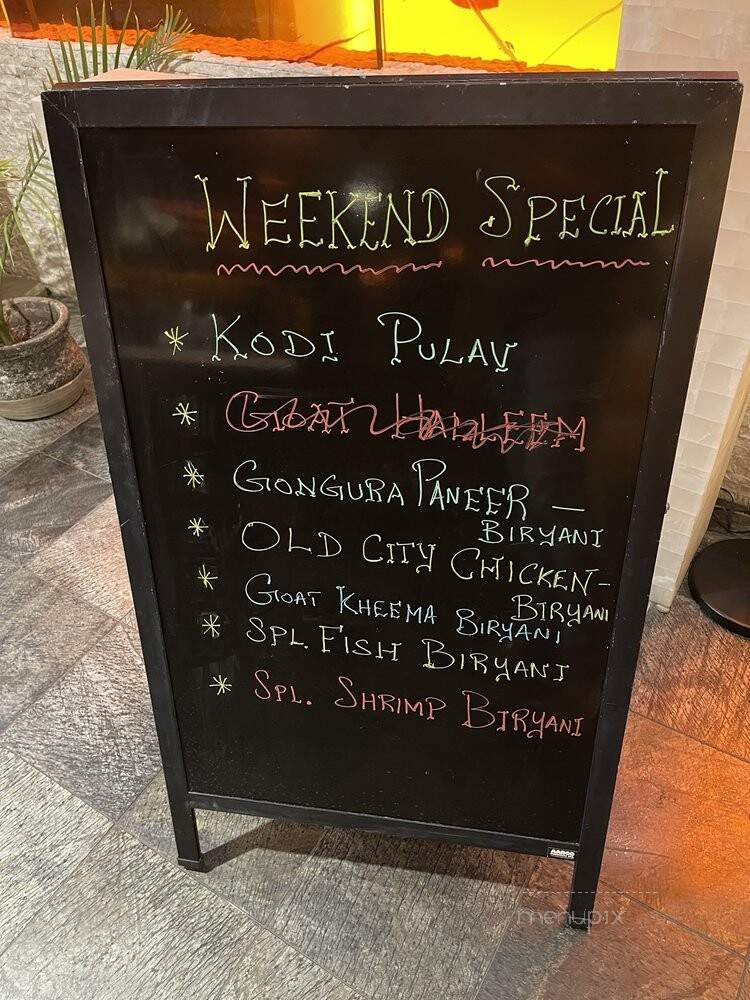 WEEKEND SPECIAL
* KODI PULAV
* GOAT HALLEEM
* GONGURA PANEER —
BIRYANI
* OLD CITY CHICKEN-
BIRYANI
* GOAT KHEEMA BIRYANI
* SPL. FISH BIRYANI
* SPL. SHRIMP BIRYANI
AARCO
menupix